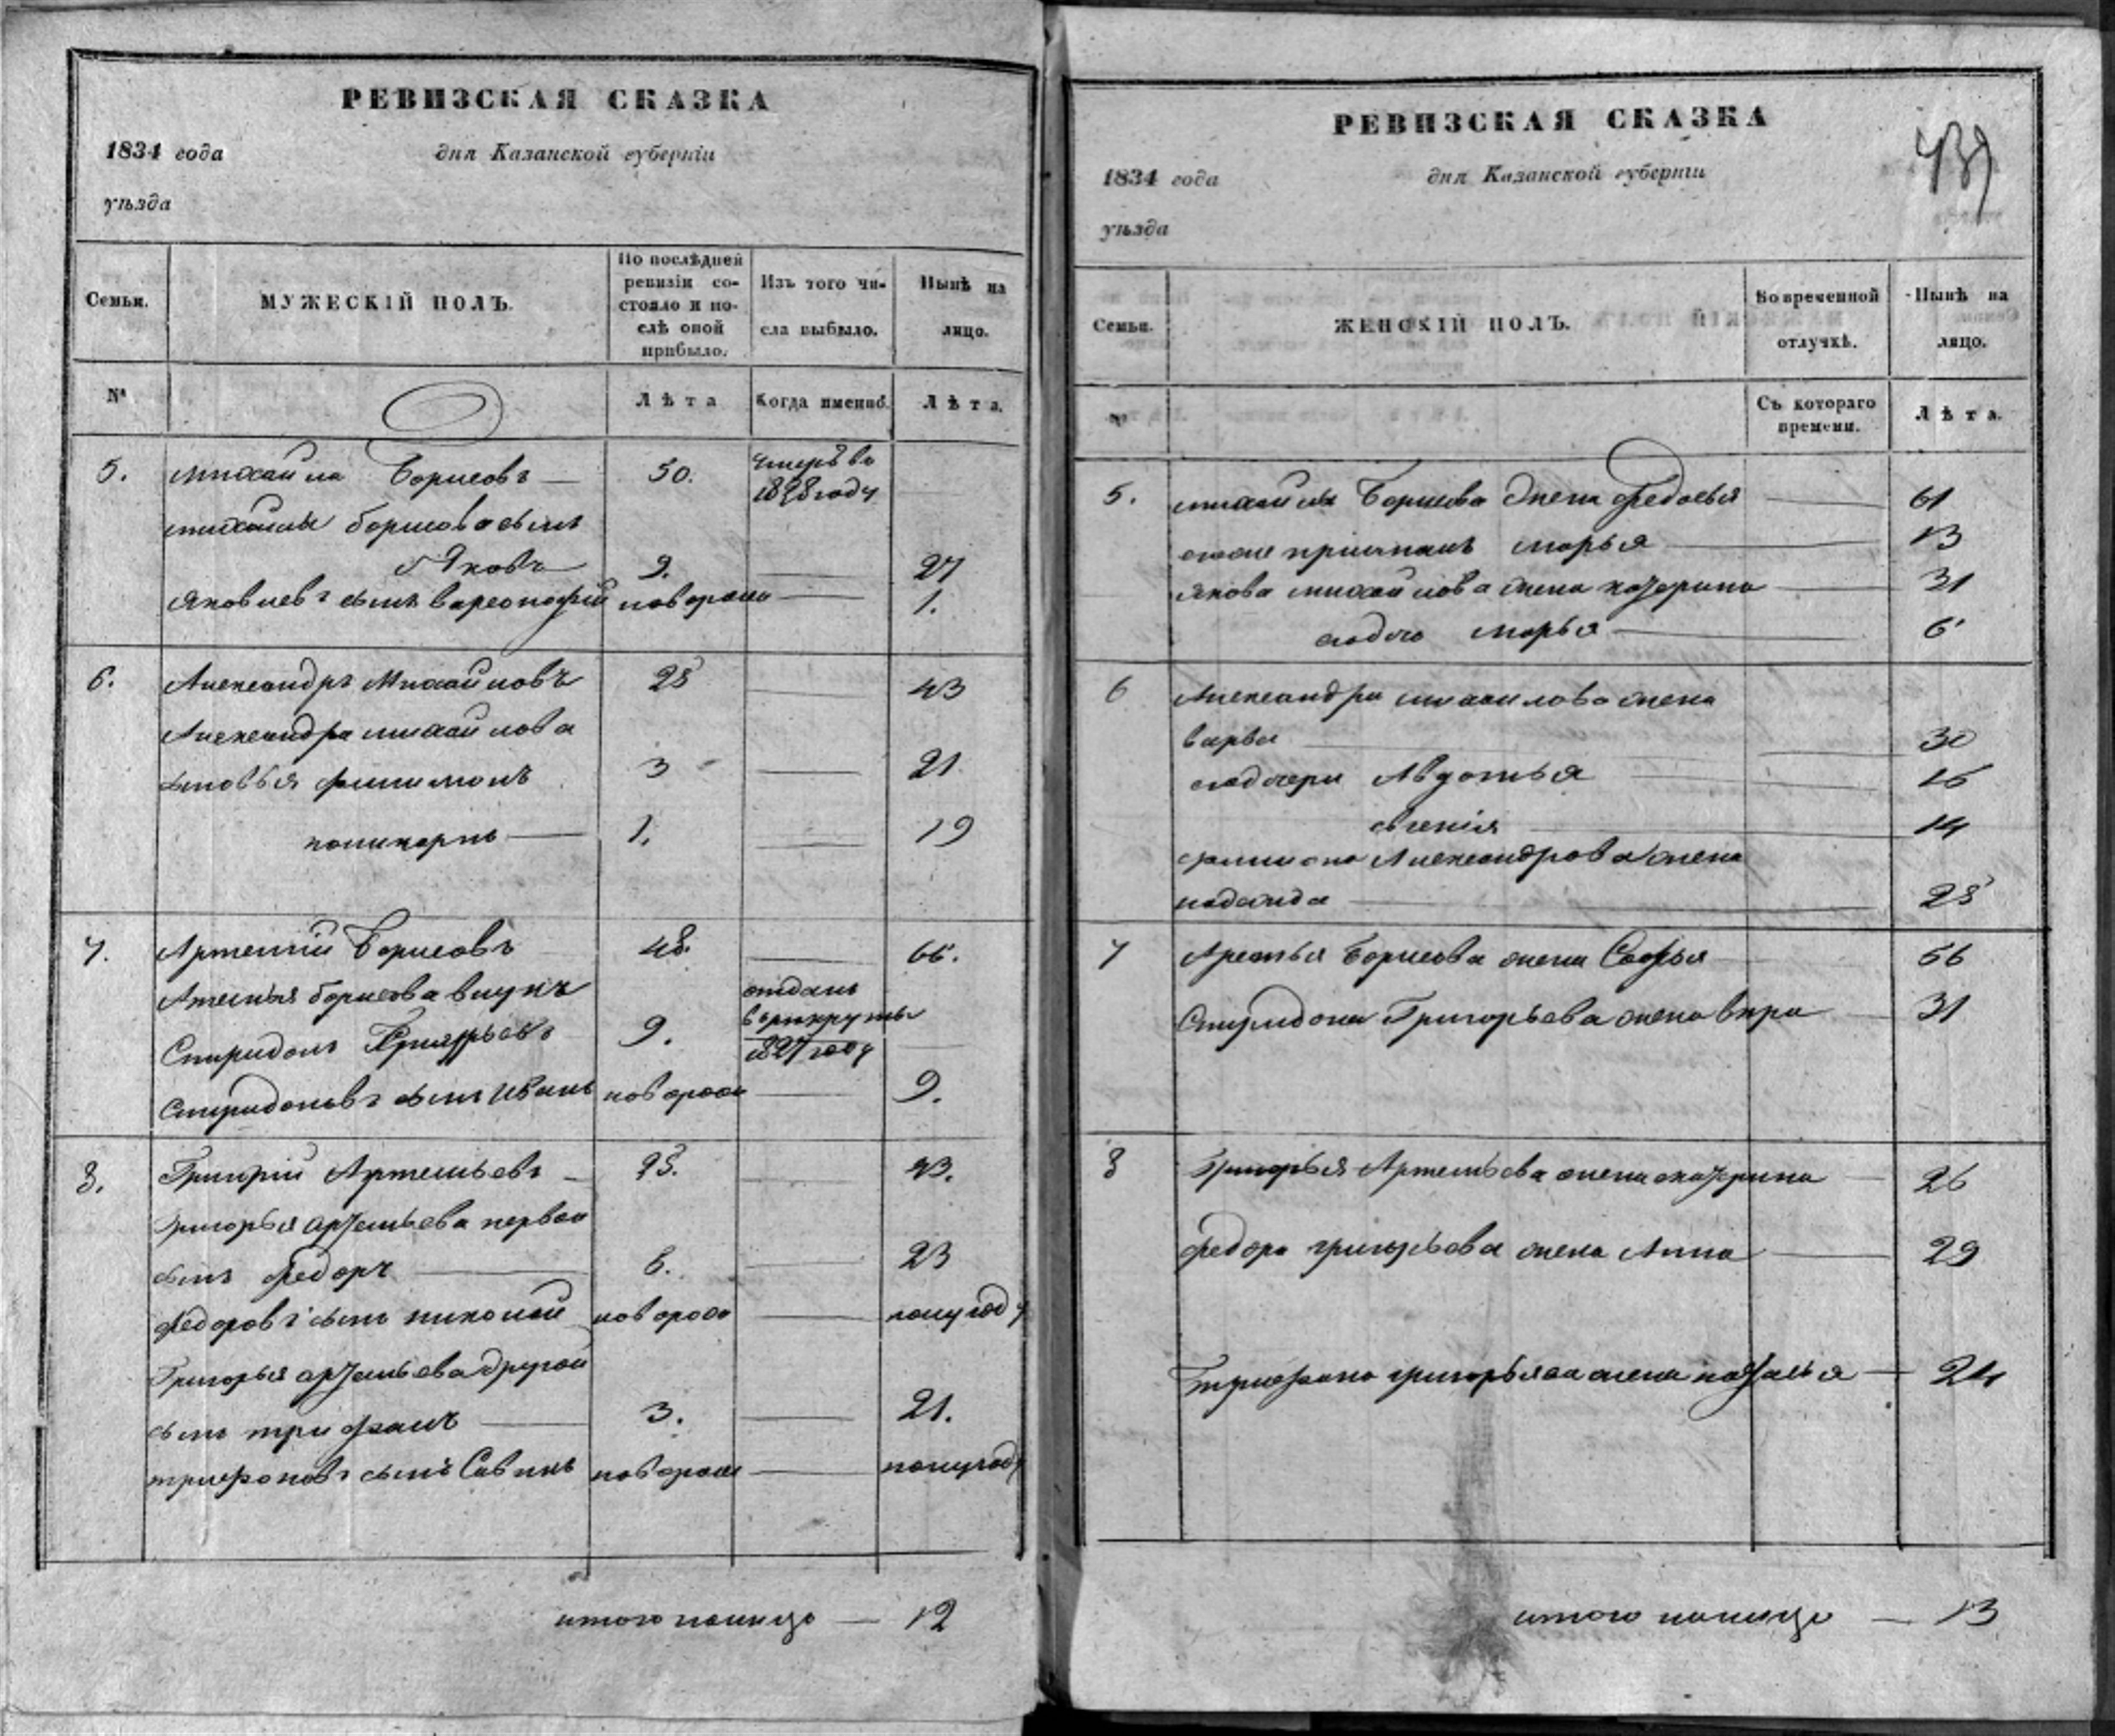 РЕВИЗСКАЯ СКАЗКА
1834 года дня Казанской губерніи
уѣзда
Семьи.
МУЖЕСКІЙ ПОЛЪ.
По послѣдней
ревизіи со-
стояло и по-
слѣ оной
прибыло.
Изъ того чи-
сла выбыло.
Нынѣ на
лицо.
№
Лѣта
Когда именно.
Лѣта.
5. михаила Борисовъ 50. умеръ во
1828 году
михаилы борисова сынъ
Яковъ 9. 27
Яковлевъ сынъ новорож 1.
6. Александръ Михайловъ 25 43
Александра михайлова
сыновья филимонъ 3 21
поликарпъ 1. 19
7. Артемий Борисовъ 48. 66.
борисова внукъ отданъ
Спиридонъ 9. в рекруты
1827 году
Спиридоновъ сынъ Иванъ новорож 9.
8. Григорій Артемьевъ 25. 43.
Григорья артемьева первой
сынъ федоръ 6. 23
федоровъ сынъ николай новорож полугоду
Григорья артемьева другой
сынъ трифанъ 3. 21.
трифоновъ сынъ Савинъ новорож полугоду
итого налицо — 12
РЕВИЗСКАЯ СКАЗКА
439
1834 года дня Казанской губерніи
уѣзда
Семьи.
ЖЕНСКІЙ ПОЛЪ.
Во временной
отлучкѣ.
Нынѣ на
лицо.
№
Съ котораго
времени.
Лѣта.
5. михайлы Борисова жена федосья 61
марья 13
якова михайлова жена катерина 31
марья 6
6 Александра михаилова жена
варва 30
Авдотья 16
евгенія 14
Александрова жена
надежда 25
7 Борисова жена Софья 56
Спиридона Григорьева жена вера 31
8 Григорья Артемьева жена катерина 26
федора григорьева жена Анна 29
жена наталья 24
итого налицо — 13